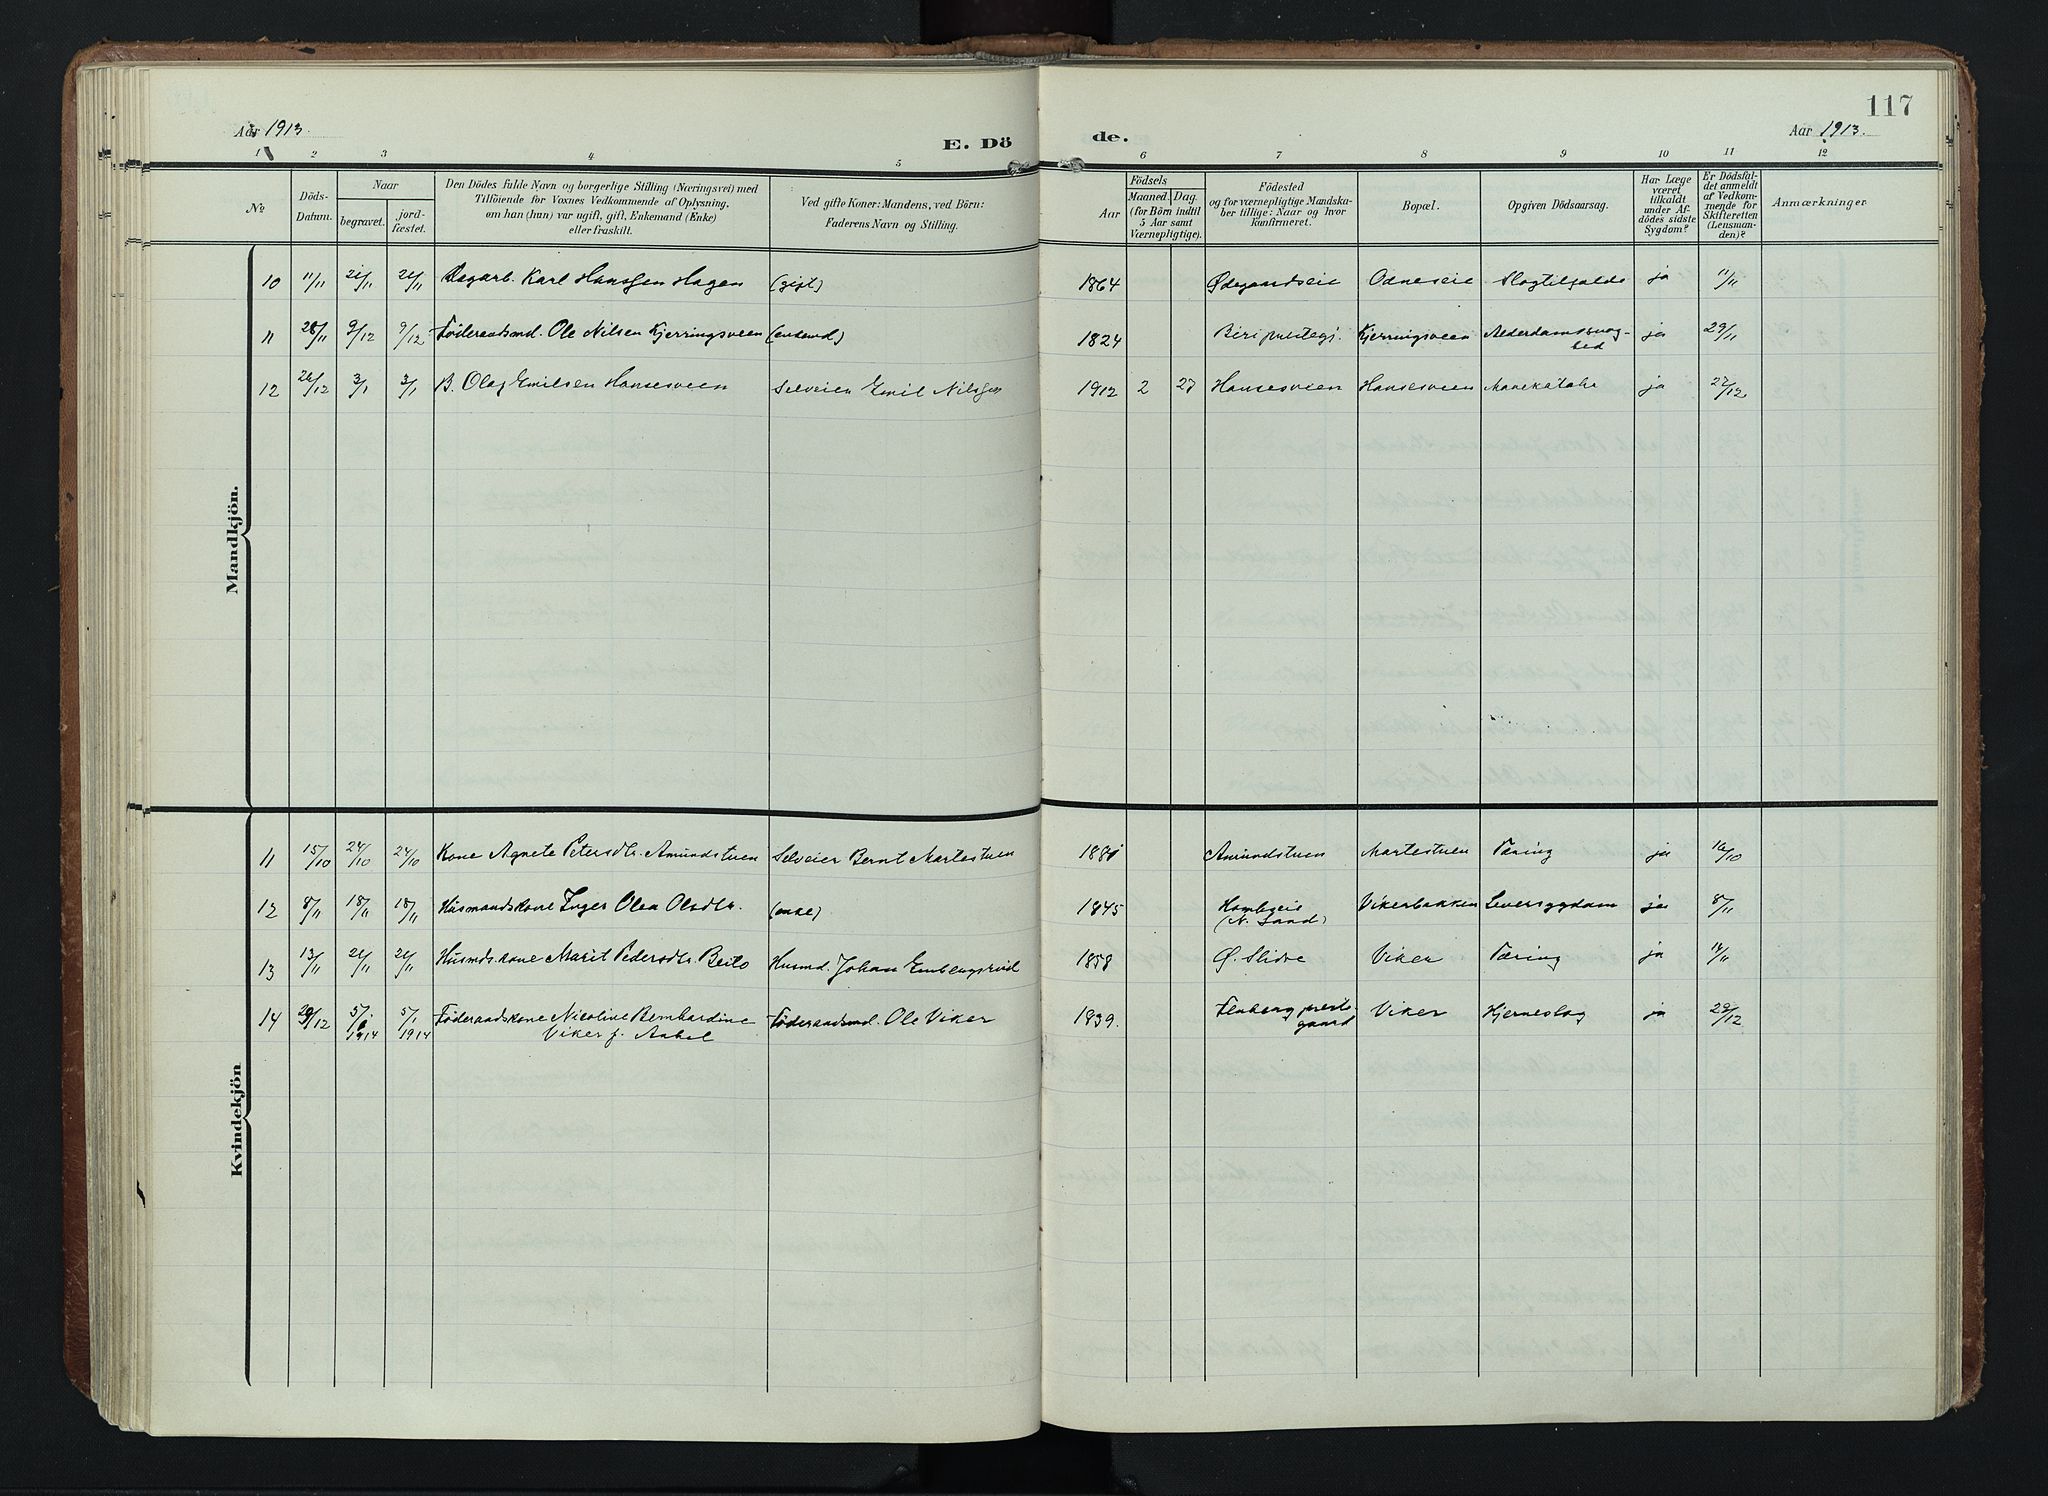 117
Aar 1913.
E. Dö
de.
Aar 1913.
1 2 3 4 5 6 7 8 9 10 11 12
No
Döds-
Datum.
Naar
begravet.
jord-
fæstet.
Den Dödes fulde Navn og borgerlige Stilling (Næringsvei) med
Tilföiende for Voxnes Vedkommende af Oplysning,
om han (hun) var ugift, gift, Enkemand (Enke)
eller fraskilt.
Ved gifte Koner: Mandens, ved Börn:
Faderens Navn og Stilling.
Födsels
Aar
Maaned. Dag.
(for Börn indtil
5 Aar samt
Værnepligtige).
Födested
og for værnepligtige Mandska-
ber tillige: Naar og hvor
konfirmeret.
Bopæl.
Opgiven Dödsaarsag.
Har Læge
været
tilkaldt
under Af-
dödes sidste
Sygdom?
Er Dödsfal-
det anmeldt
af Vedkom-
mende for
Skifteretten
(Lensman-
den)?
Anmærkninger
Mandkjön.
10 11/11 21/11 21/11 Karl Hanssen Hagen (gift) 1864 Ødegaardseie Odneseie Slagtilfælde ja 11/11
11 28/11 9/12 9/12 Föderaadsmd. Ole Nilsen Kjerringsveen (enkemd) 1824 Biri prestegj. Kjerringsveen Alderdomssvag-
hed ja 29/11
12 26/12 3/1 3/1 B. Olaf Emilsen Hansesveen Selveier Emil Nilssen 1912 2 27 Hansesveen Hansesveen Mavekatahr ja 27/12
Kvindekjön
11 15/10 24/10 24/10 Kone Agnete Petersdtr. Amundstuen Selveier Bernt Martestuen 1881 Amundstuen Martestuen Tæring ja 16/10
12 8/11 18/11 18/11 Husmandskone Inger Olea Olsdtr. (enke) 1845
(N. Land) Vikerbakken Leversygdom ja 8/11
13 13/11 21/11 21/11 Husmds.kone Marit Pedersdtr. Beito Husmd. Johan Enbergsrud 1858 Ø. Slidre Viker Tæring ja 14/11
14 29/12 5/1 1914 5/1 1914 Föderaadskone Nicoline Bernhardine
Viker f. Aabel Föderaadsmd. Ole Viker 1839. Fluberg preste-
gaard Viker Hjerneslag ja 29/12